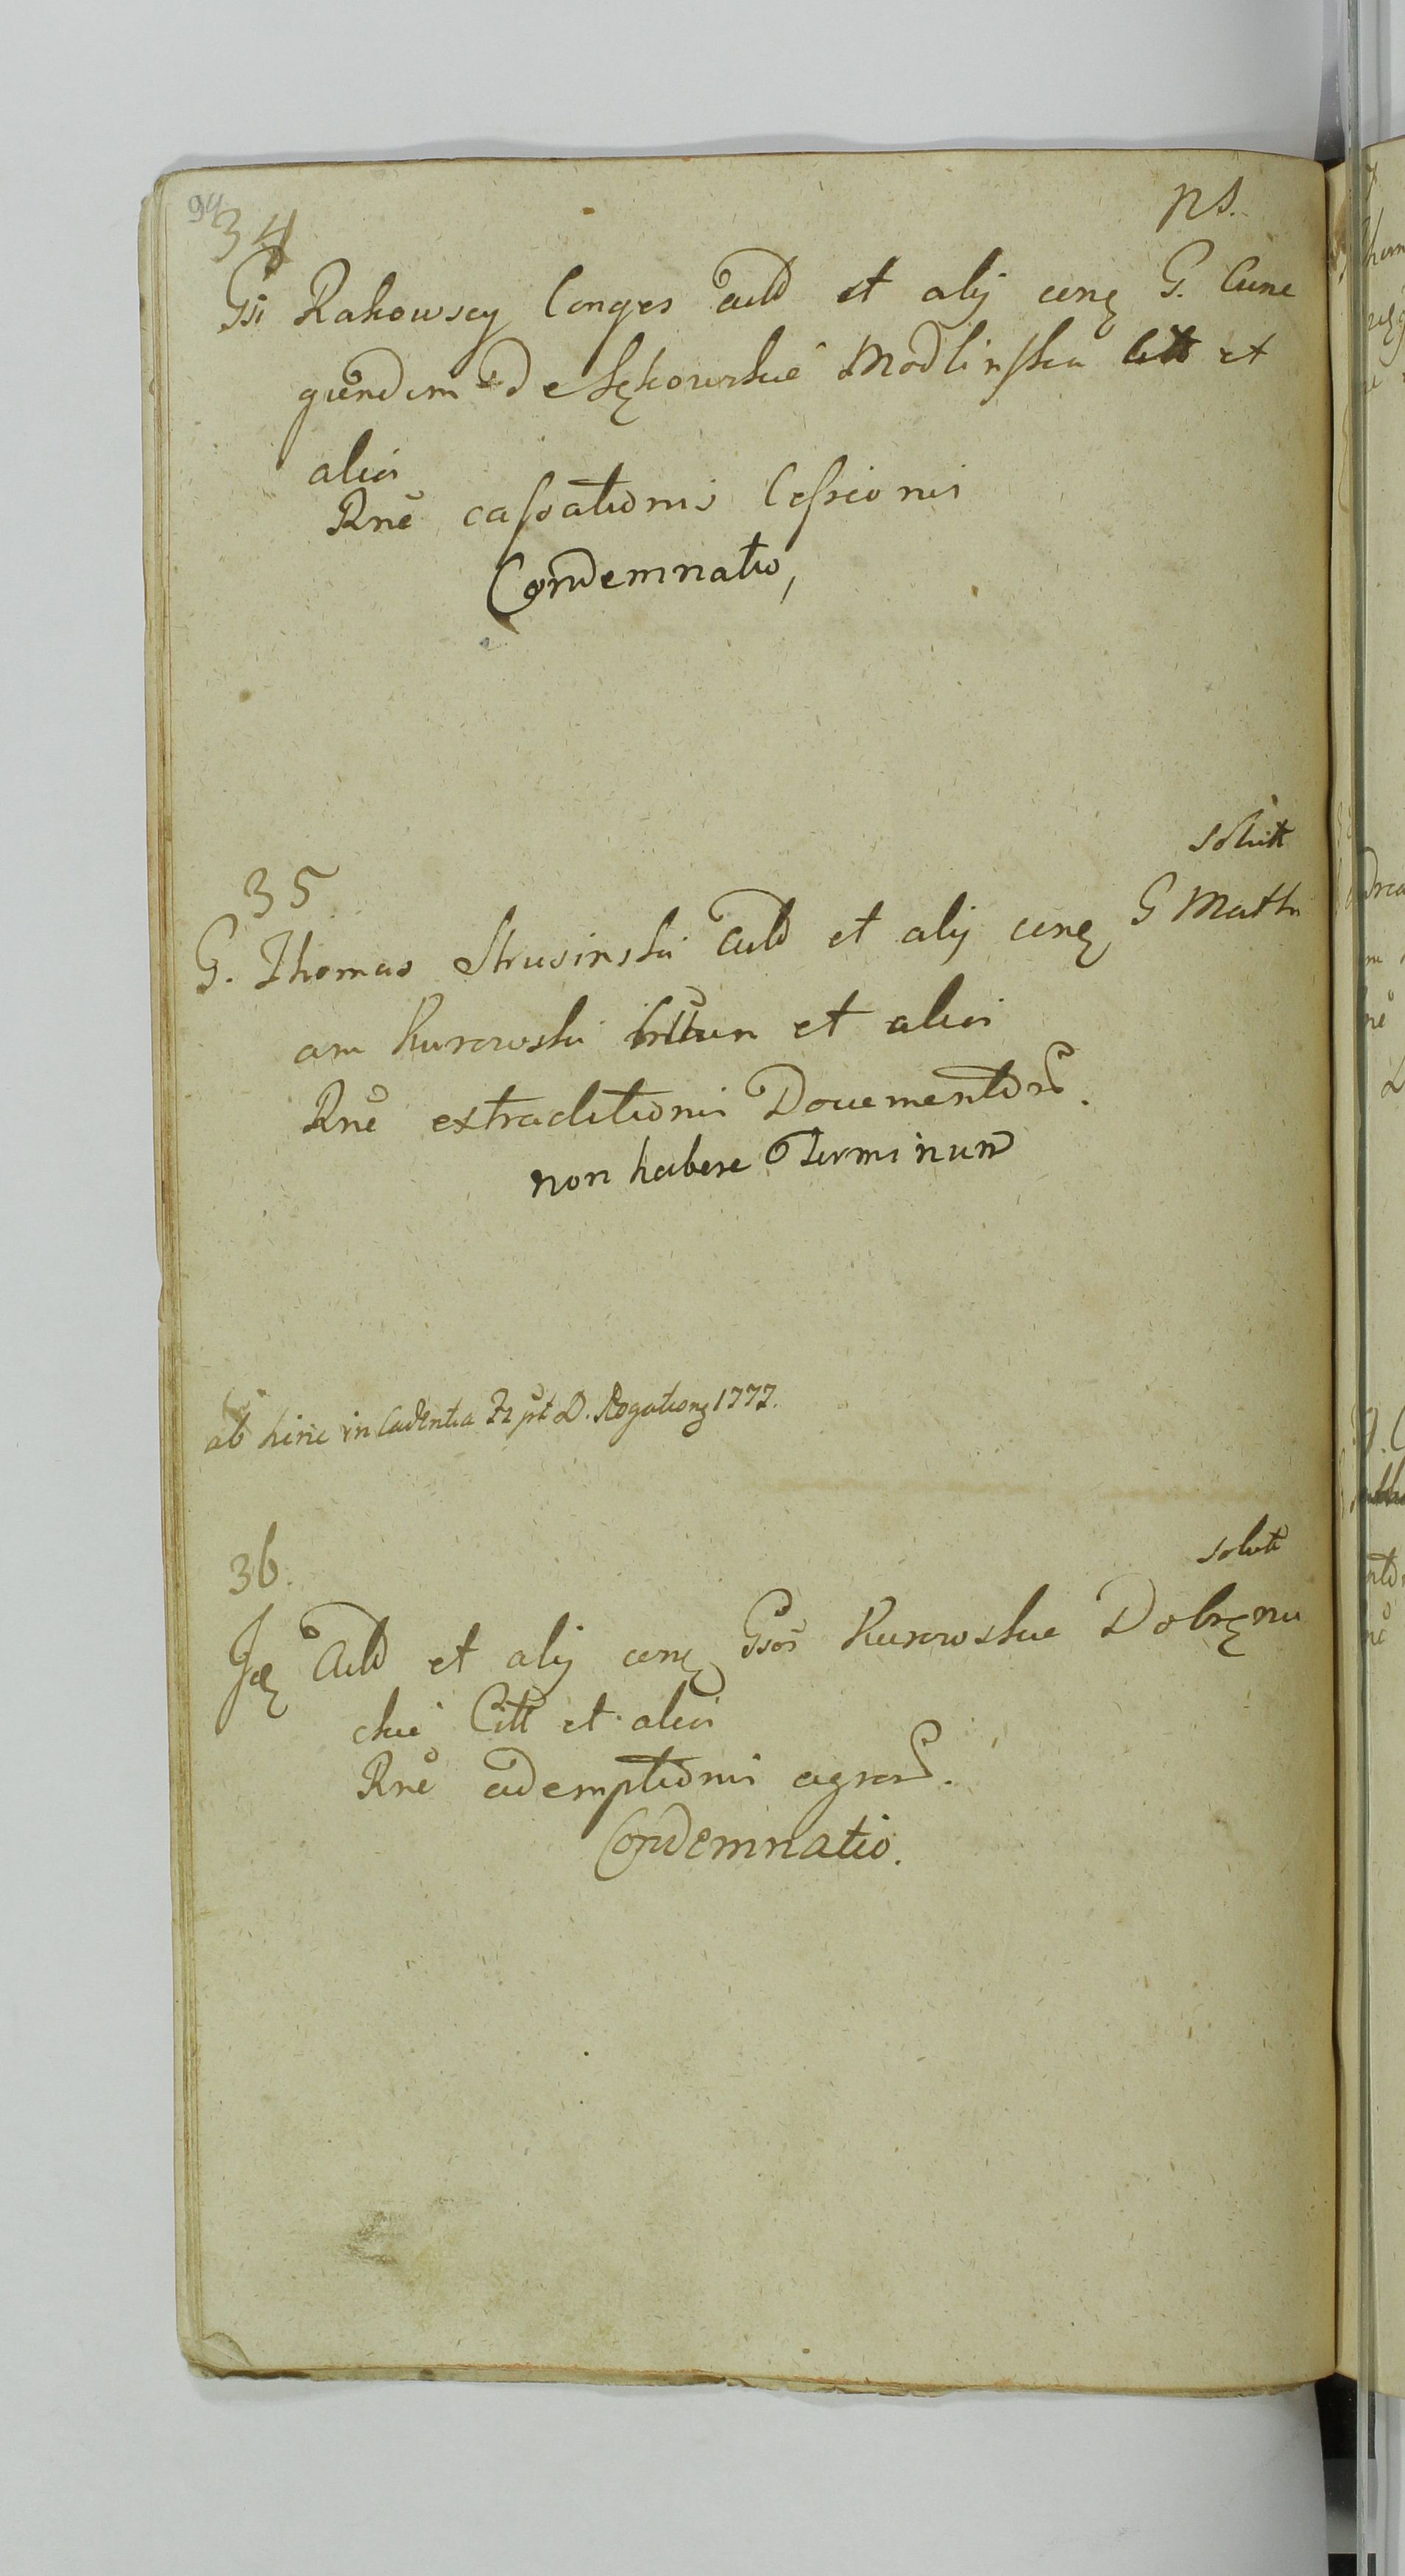 94
34
ps.
Gsi Rakowscy Conges Actd et alij conq G. Cune
gundem de Sękowskie Modlinska Citt et
alios
Rne cassationis Cessionis
Condemnatio,
solutt
35
G. Thomas Strusinski Actd et alij conq G Mathi
am Kurowski et alios
Rne extraditionis Documentor.
non habere Terminum
ab hinc in Cadentia pt D. Rogationq 1777.
36.
solutt
Actd et alij conq Gsos Kurowskie Dobrzęnie
ckie Citt et alios
Rne ademptionis agror.
Condemnatio.